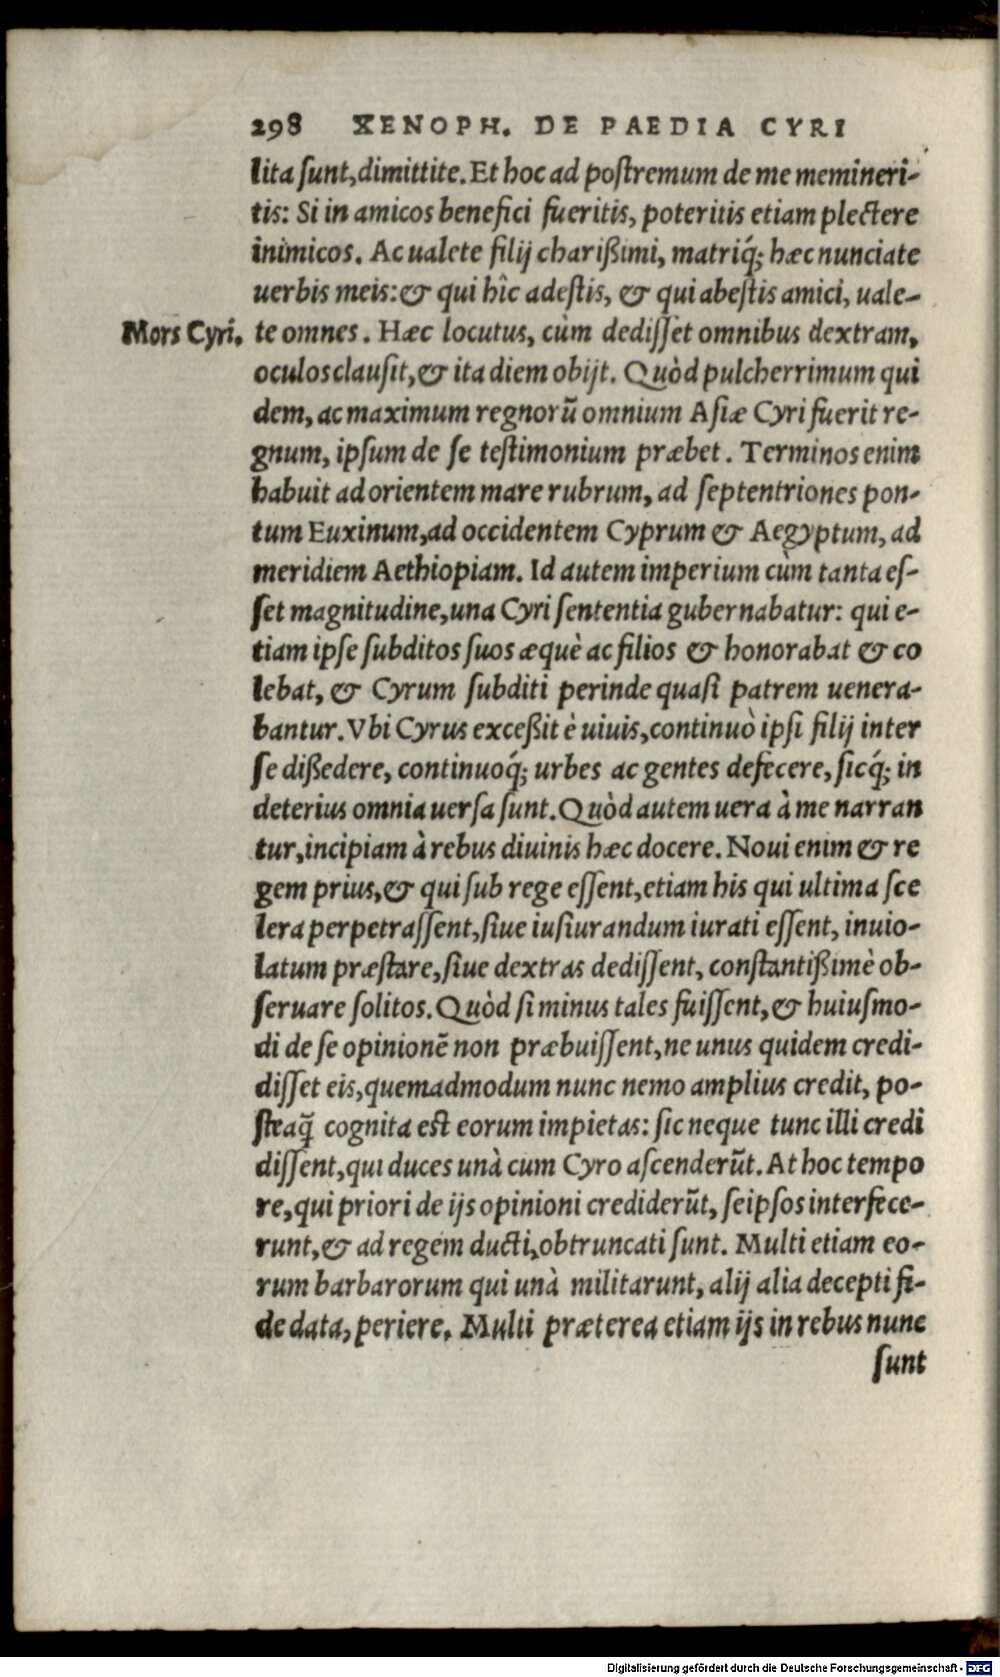 298 XENOPH. DE PAEDIA CYRI
lita ſunt, dimittite. Et hoc ad poſtremum de me memineri-
tis: Si in amicos benefici fueritis, poteritis etiam plectere
inimicos. Ac ualete filij charißimi, matriq́; hæc nunciate
uerbis meis: & qui hîc adeſtis, & qui abeſtis amici, uale-
Mors Cyri. te omnes. Hæc locutus, cùm dediſſet omnibus dextram,
oculos clauſit, & ita diem obijt. Quòd pulcherrimum qui
dem, ac maximum regnorũ omnium Aſiæ Cyri fuerit re-
gnum, ipſum de ſe teſtimonium præbet. Terminos enim
habuit ad orientem mare rubrum, ad ſeptentriones pon-
tum Euxinum, ad occidentem Cyprum & Aegyptum, ad
meridiem Aethiopiam. Id autem imperium cùm tanta eſ-
ſet magnitudine, una Cyri ſententia gubernabatur: qui e-
tiam ipſe ſubditos ſuos æquè ac filios & honorabat & co
lebat, & Cyrum ſubditi perinde quaſi patrem uenera-
bantur. Vbi Cyrus exceßit è uiuis, continuò ipſi filij inter
ſe dißedere, continuoq́; urbes ac gentes defecere, ſicq́; in
deterius omnia uerſa ſunt. Quòd autem uera à me narran
tur, incipiam à rebus diuinis hæc docere. Noui enim & re
gem prius, & qui ſub rege eſſent, etiam his qui ultima ſce
lera perpetraſſent, ſiue iuſiurandum iurati eſſent, inuio-
latum præſtare, ſiue dextras dediſſent, conſtantißimè ob-
ſeruare ſolitos. Quòd ſi minus tales fuiſſent, & huiuſmo-
di de ſe opinionẽ non præbuiſſent, ne unus quidem credi-
diſſet eis, quemadmodum nunc nemo amplius credit, po-
ſteaq̃ cognita eſt eorum impietas: ſic neque tunc illi credi
diſſent, qui duces unà cum Cyro aſcenderũt. At hoc tempo
re, qui priori de ijs opinioni crediderũt, ſeipſos interfece-
runt, & ad regem ducti, obtruncati ſunt. Multi etiam eo-
rum barbarorum qui unà militarunt, alij alia decepti fi-
de data, periere. Multi præterea etiam ijs in rebus nunc
ſunt
Digitalisierung gefördert durch die Deutsche Forschungsgemeinschaft - DFG